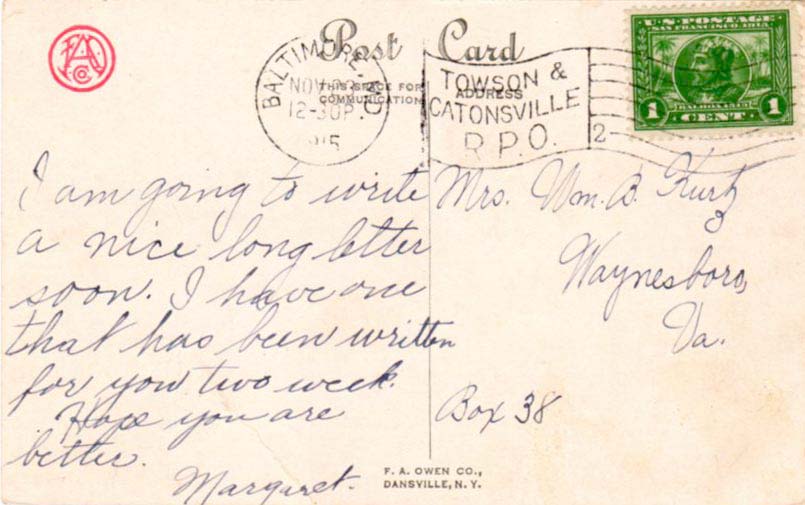 Post Card
THIS SPACE FOR
COMMUNICATION
ADDRESS
BALTIMORE, MD
NOV
12-30P
1915
TOWSON &
CATONSVILLE
R.P.O.
2
U.S. POSTAGE
SAN FRANCISCO, 1915
BALBOA, 1513
1 CENT 1
I am going to write
a nice long letter
soon. I have one
that has been written
for you two week.
Hope you are
better.
Margaret.
Mrs. Wm. B. Kurtz
Waynesboro,
Va.
Box 38
F. A. OWEN CO.,
DANSVILLE, N. Y.